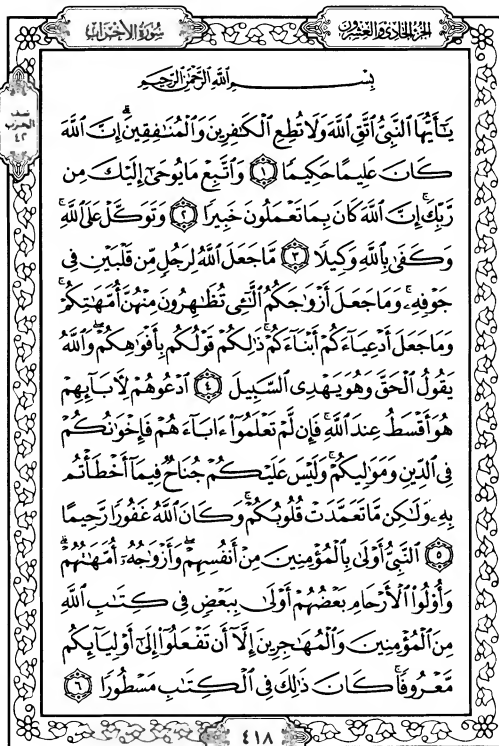 الجزء الحادي والعشرون
سورة الأحزاب
نصف
الحزب
٤٢
بِسْمِ اللَّهِ الرَّحْمَٰنِ الرَّحِيمِ
يَٰٓأَيُّهَا ٱلنَّبِيُّ ٱتَّقِ ٱللَّهَ وَلَا تُطِعِ ٱلْكَٰفِرِينَ وَٱلْمُنَٰفِقِينَۗ إِنَّ ٱللَّهَ
كَانَ عَلِيمًا حَكِيمًا ١ وَٱتَّبِعْ مَا يُوحَىٰٓ إِلَيْكَ مِن
رَّبِّكَۚ إِنَّ ٱللَّهَ كَانَ بِمَا تَعْمَلُونَ خَبِيرًا ٢ وَتَوَكَّلْ عَلَى ٱللَّهِۚ
وَكَفَىٰ بِٱللَّهِ وَكِيلًا ٣ مَّا جَعَلَ ٱللَّهُ لِرَجُلٍ مِّن قَلْبَيْنِ فِى
جَوْفِهِۦۚ وَمَا جَعَلَ أَزْوَٰجَكُمُ ٱلَّٰٓـِٔى تُظَٰهِرُونَ مِنْهُنَّ أُمَّهَٰتِكُمْۚ
وَمَا جَعَلَ أَدْعِيَآءَكُمْ أَبْنَآءَكُمْۚ ذَٰلِكُمْ قَوْلُكُم بِأَفْوَٰهِكُمْۖ وَٱللَّهُ
يَقُولُ ٱلْحَقَّ وَهُوَ يَهْدِى ٱلسَّبِيلَ ٤ ٱدْعُوهُمْ لِءَابَآئِهِمْ
هُوَ أَقْسَطُ عِندَ ٱللَّهِۚ فَإِن لَّمْ تَعْلَمُوٓا۟ ءَابَآءَهُمْ فَإِخْوَٰنُكُمْ
فِى ٱلدِّينِ وَمَوَٰلِيكُمْۚ وَلَيْسَ عَلَيْكُمْ جُنَاحٌ فِيمَآ أَخْطَأْتُم
بِهِۦ وَلَٰكِن مَّا تَعَمَّدَتْ قُلُوبُكُمْۚ وَكَانَ ٱللَّهُ غَفُورًا رَّحِيمًا
٥ ٱلنَّبِيُّ أَوْلَىٰ بِٱلْمُؤْمِنِينَ مِنْ أَنفُسِهِمْۖ وَأَزْوَٰجُهُۥٓ أُمَّهَٰتُهُمْۗ
وَأُو۟لُوا۟ ٱلْأَرْحَامِ بَعْضُهُمْ أَوْلَىٰ بِبَعْضٍ فِى كِتَٰبِ ٱللَّهِ
مِنَ ٱلْمُؤْمِنِينَ وَٱلْمُهَٰجِرِينَ إِلَّآ أَن تَفْعَلُوٓا۟ إِلَىٰٓ أَوْلِيَآئِكُم
مَّعْرُوفًاۚ كَانَ ذَٰلِكَ فِى ٱلْكِتَٰبِ مَسْطُورًا ٦
٤١٨